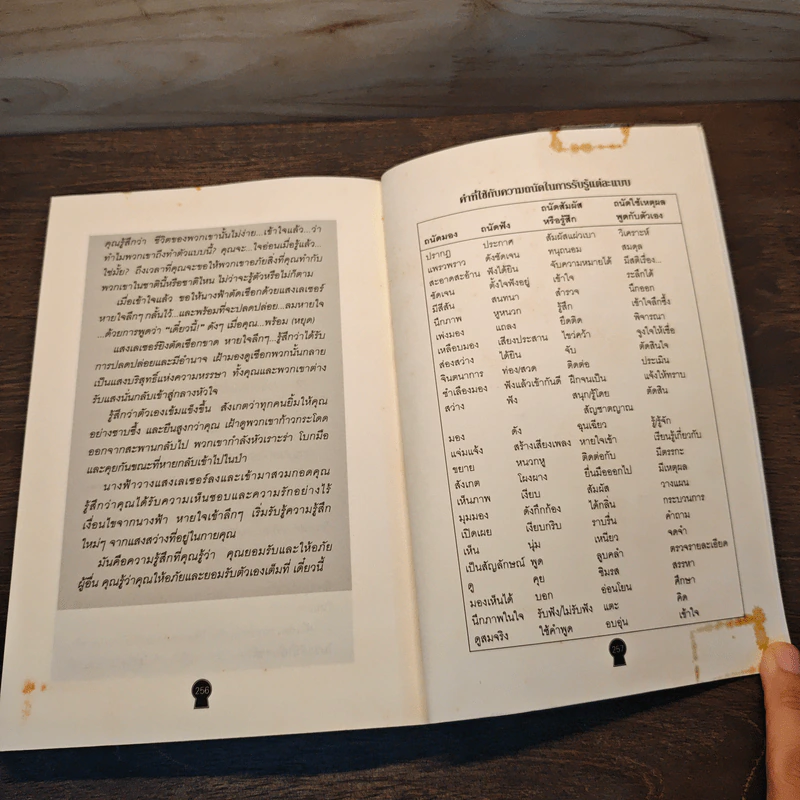 คุณรู้สึกว่า ชีวิตของพวกเขานั้นไม่ง่าย...เข้าใจแล้ว...ว่า
ทำไมพวกเขาถึงทำตัวแบบนี้? คุณจะ...ใจอ่อนเมื่อรู้แล้ว...
ใช่มั้ย? ถึงเวลาที่คุณจะขอให้พวกเขาอภัยสิ่งที่คุณทำกับ
พวกเขาในชาตินี้หรือชาติไหน ไม่ว่าจะรู้ตัวหรือไม่ก็ตาม
เมื่อเข้าใจแล้ว ขอให้นางฟ้าตัดเชือกด้วยแสงเลเซอร์
หายใจลึกๆ กลั้นไว้...และพร้อมที่จะปลดปล่อย...ลมหายใจ
...ด้วยการพูดว่า "เดี๋ยวนี้!" ดังๆ เมื่อคุณ...พร้อม (หยุด)
แสงเลเซอร์ยิงตัดเชือกขาด หายใจลึกๆ...รู้สึกว่าได้รับ
การปลดปล่อยและมีอำนาจ เฝ้ามองดูเชือกพวกนั้นกลาย
เป็นแสงบริสุทธิ์แห่งความหรรษา ทั้งคุณและพวกเขาต่าง
รับแสงนั่นกลับเข้าสู่กลางหัวใจ
รู้สึกว่าตัวเองเข้มแข็งขึ้น สังเกตว่าทุกคนยิ้มให้คุณ
อย่างซาบซึ้ง และยืนสูงกว่าคุณ เฝ้าดูพวกเขาก้าวกระโดด
ออกจากสะพานกลับไป พวกเขากำลังหัวเราะร่า โบกมือ
และคุยกันขณะที่หายกลับเข้าไปในป่า
นางฟ้าวางแสงเลเซอร์ลงและเข้ามาสวมกอดคุณ
รู้สึกว่าคุณได้รับความเห็นชอบและความรักอย่างไร้
เงื่อนไขจากนางฟ้า หายใจเข้าลึกๆ เริ่มรับรู้ความรู้สึก
ใหม่ๆ จากแสงสว่างที่อยู่ในกายคุณ
มันคือความรู้สึกที่คุณรู้ว่า คุณยอมรับและให้อภัย
ผู้อื่น คุณรู้ว่าคุณให้อภัยและยอมรับตัวเองเต็มที่ เดี๋ยวนี้
256
คำที่ใช้กับความถนัดในการรับรู้แต่ละแบบ
ถนัดมอง ถนัดฟัง ถนัดสัมผัสหรือรู้สึก ถนัดใช้เหตุผลพูดกับตัวเอง
ปรากฏ ประกาศ สัมผัสแผ่วเบา วิเคราะห์
แพรวพราว ดังชัดเจน ทนุถนอม สมดุล
สะอาดสะอ้าน ฟังได้ยิน จับความหมายได้ มีสติเรื่อง...
ชัดเจน ตั้งใจฟังอยู่ เข้าใจ ระลึกได้
มีสีสัน สนทนา สำรวจ นึกออก
นึกภาพ หูหนวก รู้สึก เข้าใจลึกซึ้ง
เพ่งมอง แถลง ยึดติด พิจารณา
เหลือบมอง เสียงประสาน ไขว่คว้า จูงใจให้เชื่อ
ส่องสว่าง ได้ยิน จับ ตัดสินใจ
จินตนาการ ท่อง/สวด ติดต่อ ประเมิน
ชำเลืองมอง ฟังแล้วเข้ากันดี ฝึกจนเป็น แจ้งให้ทราบ
สว่าง ฟัง สนุก/รู้โดย ตัดสิน
สัญชาตญาณ
มอง ดัง ฉุนเฉียว รู้/รู้จัก
แจ่มแจ้ง สร้างเสียงเพลง หายใจเข้า เรียนรู้เกี่ยวกับ
ขยาย หนวกหู ติดต่อกับ มีตรรกะ
สังเกต โผงผาง ยื่นมือออกไป มีเหตุผล
เห็นภาพ เงียบ สัมผัส วางแผน
มุมมอง ดังกึกก้อง ได้กลิ่น กระบวนการ
เปิดเผย เงียบกริบ ราบรื่น คำถาม
เห็น นุ่ม เหนียว จดจำ
เป็นสัญลักษณ์ พูด ลูบคลำ ตรวจรายละเอียด
ดู คุย ชิมรส สรรหา
มองเห็นได้ บอก อ่อนโยน ศึกษา
นึกภาพในใจ รับฟัง/ไม่รับฟัง แตะ คิด
ดูสมจริง ใช้คำพูด อบอุ่น เข้าใจ
257